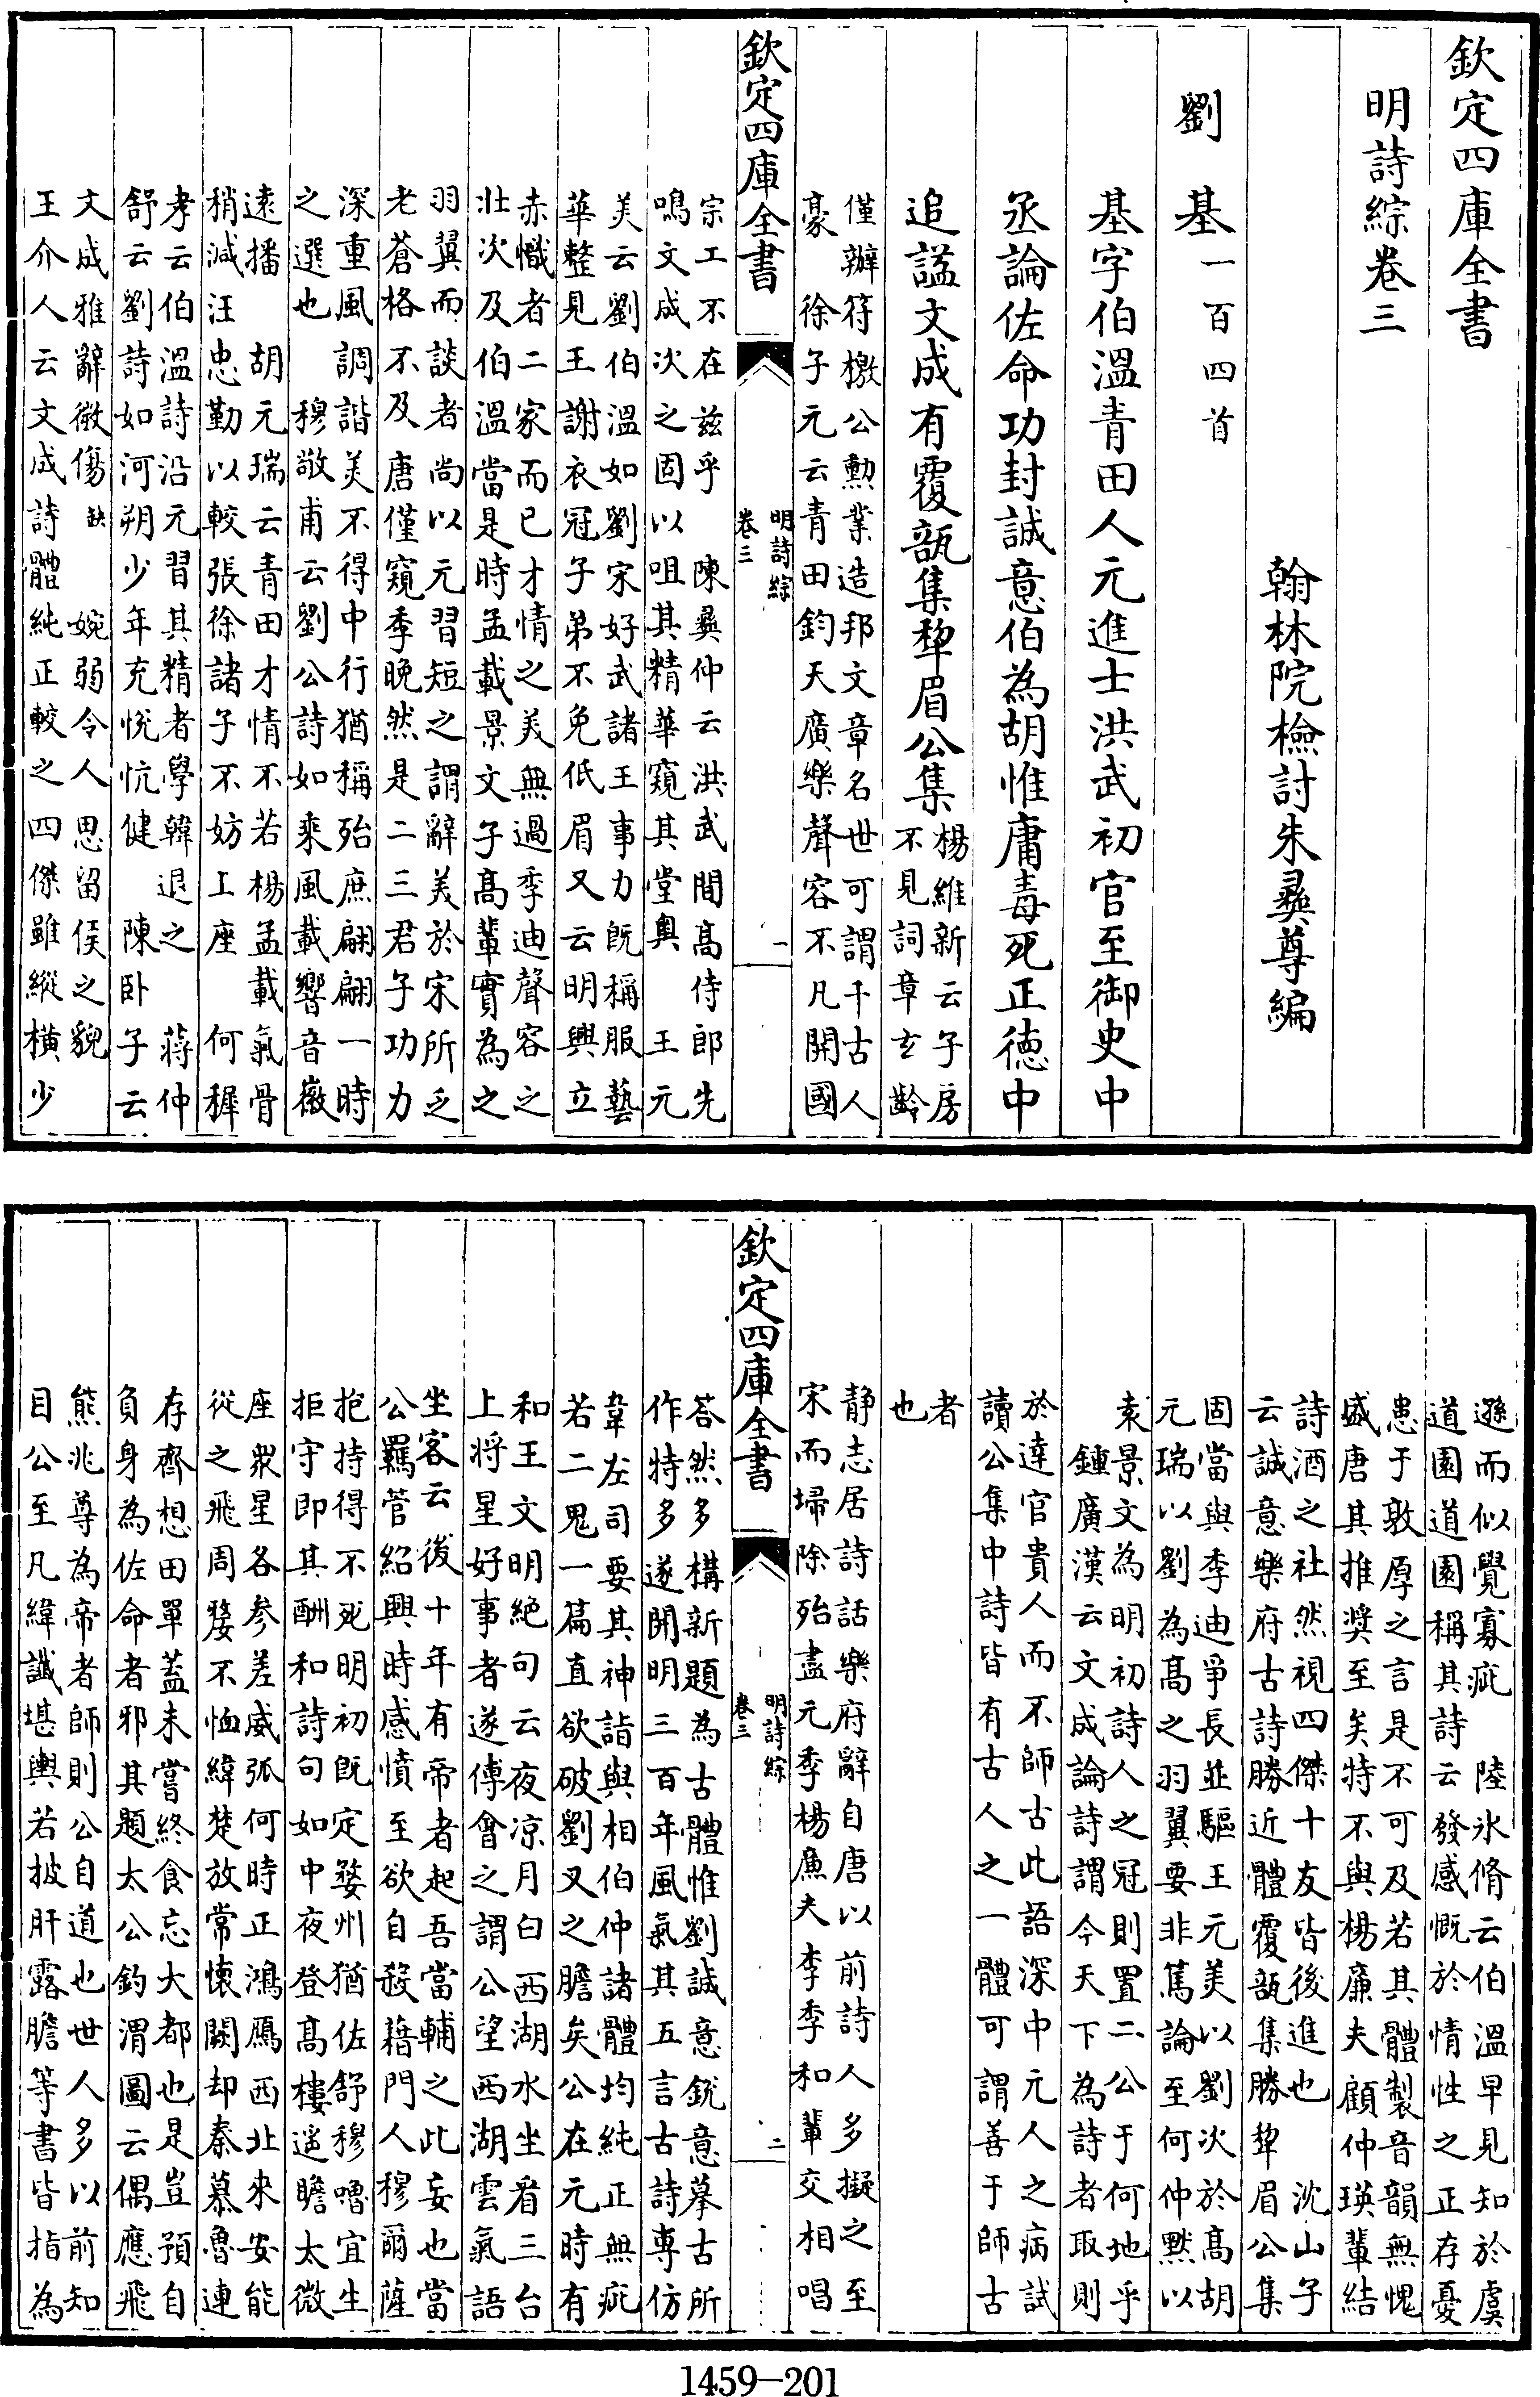 欽定四庫全書
明詩綜卷三
翰林院檢討朱彝尊編
劉基一百四首
基字伯溫青田人元進士洪武初官至御史中
丞論佐命功封誠意伯為胡惟庸毒死正德中
追諡文成有覆瓿集犂眉公集
楊維新云子房
不見詞章玄齡
僅辦符檄公勳業造邦文章名世可謂千古人
豪　徐子元云青田鈞天廣樂聲容不凡開國
欽定四庫全書
明詩綜
卷三
一
宗工不在茲乎　陳彝仲云洪武間高侍郎先
鳴文成次之固以咀其精華窺其堂奧　王元
美云劉伯溫如劉宋好武諸王事力既稱服藝
華整見王謝衣冠子弟不免低眉又云明興立
赤幟者二家而已才情之美無過季迪聲容之
壯次及伯溫當是時孟載景文子高輩實為之
羽翼而談者尚以元習短之謂辭美於宋所乏
老蒼格不及唐僅窺季晚然是二三君子功力
深重風調諧美不得中行猶稱殆庶翩翩一時
之選也　穆敬甫云劉公詩如乘風載響音徽
遠播　胡元瑞云青田才情不若楊孟載氣骨
稍減汪忠勤以較張徐諸子不妨上座　何穉
孝云伯溫詩沿元習其精者學韓退之　蔣仲
舒云劉詩如河朔少年充悅忼健　陳卧子云
文成雅辭微傷缺　婉弱令人思留侯之貌
王介人云文成詩體純正較之四傑雖縱橫少
遜而似覺寡疵　陸氷脩云伯溫早見知於虞
道園道園稱其詩云發感慨於情性之正存憂
患于敦厚之言是不可及若其體製音韻無愧
盛唐其推奬至矣特不與楊廉夫顧仲瑛輩結
詩酒之社然視四傑十友皆後進也　沈山子
云誠意樂府古詩勝近體覆瓿集勝犂眉公集
固當與季迪爭長並驅王元美以劉次於高胡
元瑞以劉為高之羽翼要非篤論至何仲默以
袁景文為明初詩人之冠則置二公于何地乎
鍾廣漢云文成論詩謂今天下為詩者取則
於達官貴人而不師古此語深中元人之病試
讀公集中詩皆有古人之一體可謂善于師古
者
也
静志居詩話樂府辭自唐以前詩人多擬之至
宋而埽除殆盡元季楊廉夫李季和輩交相唱
欽定四庫全書
明詩綜
卷三
二
荅然多構新題為古體惟劉誠意銳意摹古所
作特多遂開明三百年風氣其五言古詩專仿
韋左司要其神詣與相伯仲諸體均純正無疵
若二鬼一篇直欲破劉叉之膽矣公在元時有
和王文明絕句云夜凉月白西湖水坐看三台
上将星好事者遂傅會之謂公望西湖雲氣語
坐客云後十年有帝者起吾當輔之此妄也當
公羈管紹興時感憤至欲自殺藉門人穆爾薩
抱持得不死明初既定婺州猶佐舒穆嚕宜生
拒守即其酬和詩句如中夜登高樓遥瞻太微
座衆星各參差威弧何時正鴻鴈西北來安能
從之飛周嫠不恤緯楚放常懷闕却秦慕魯連
存齊想田單蓋未嘗終食忘大都也是豈預自
負身為佐命者邪其題太公釣渭圖云偶應飛
熊兆尊為帝者師則公自道也世人多以前知
目公至凡緯讖堪輿若披肝露膽等書皆指為
1459—201